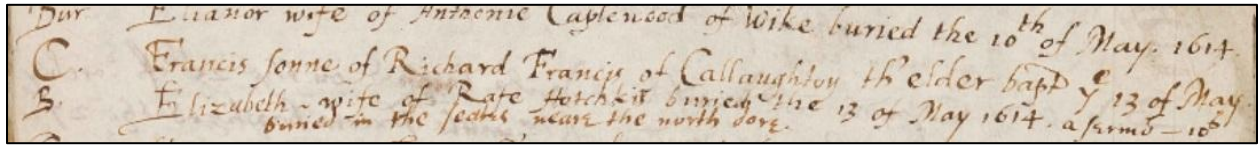 Bur Elianor wife of Anthonie Caplewood of Wike buried the 10th of May. 1614.
C. Francis sonne of Richard Francis of Callaughton th'elder bapt ye 13 of May.
B. Elizabeth wife of Rafe Hotchkis buried the 13 of May 1614. a sermō - 10s
buried in the seates neare the north dore.